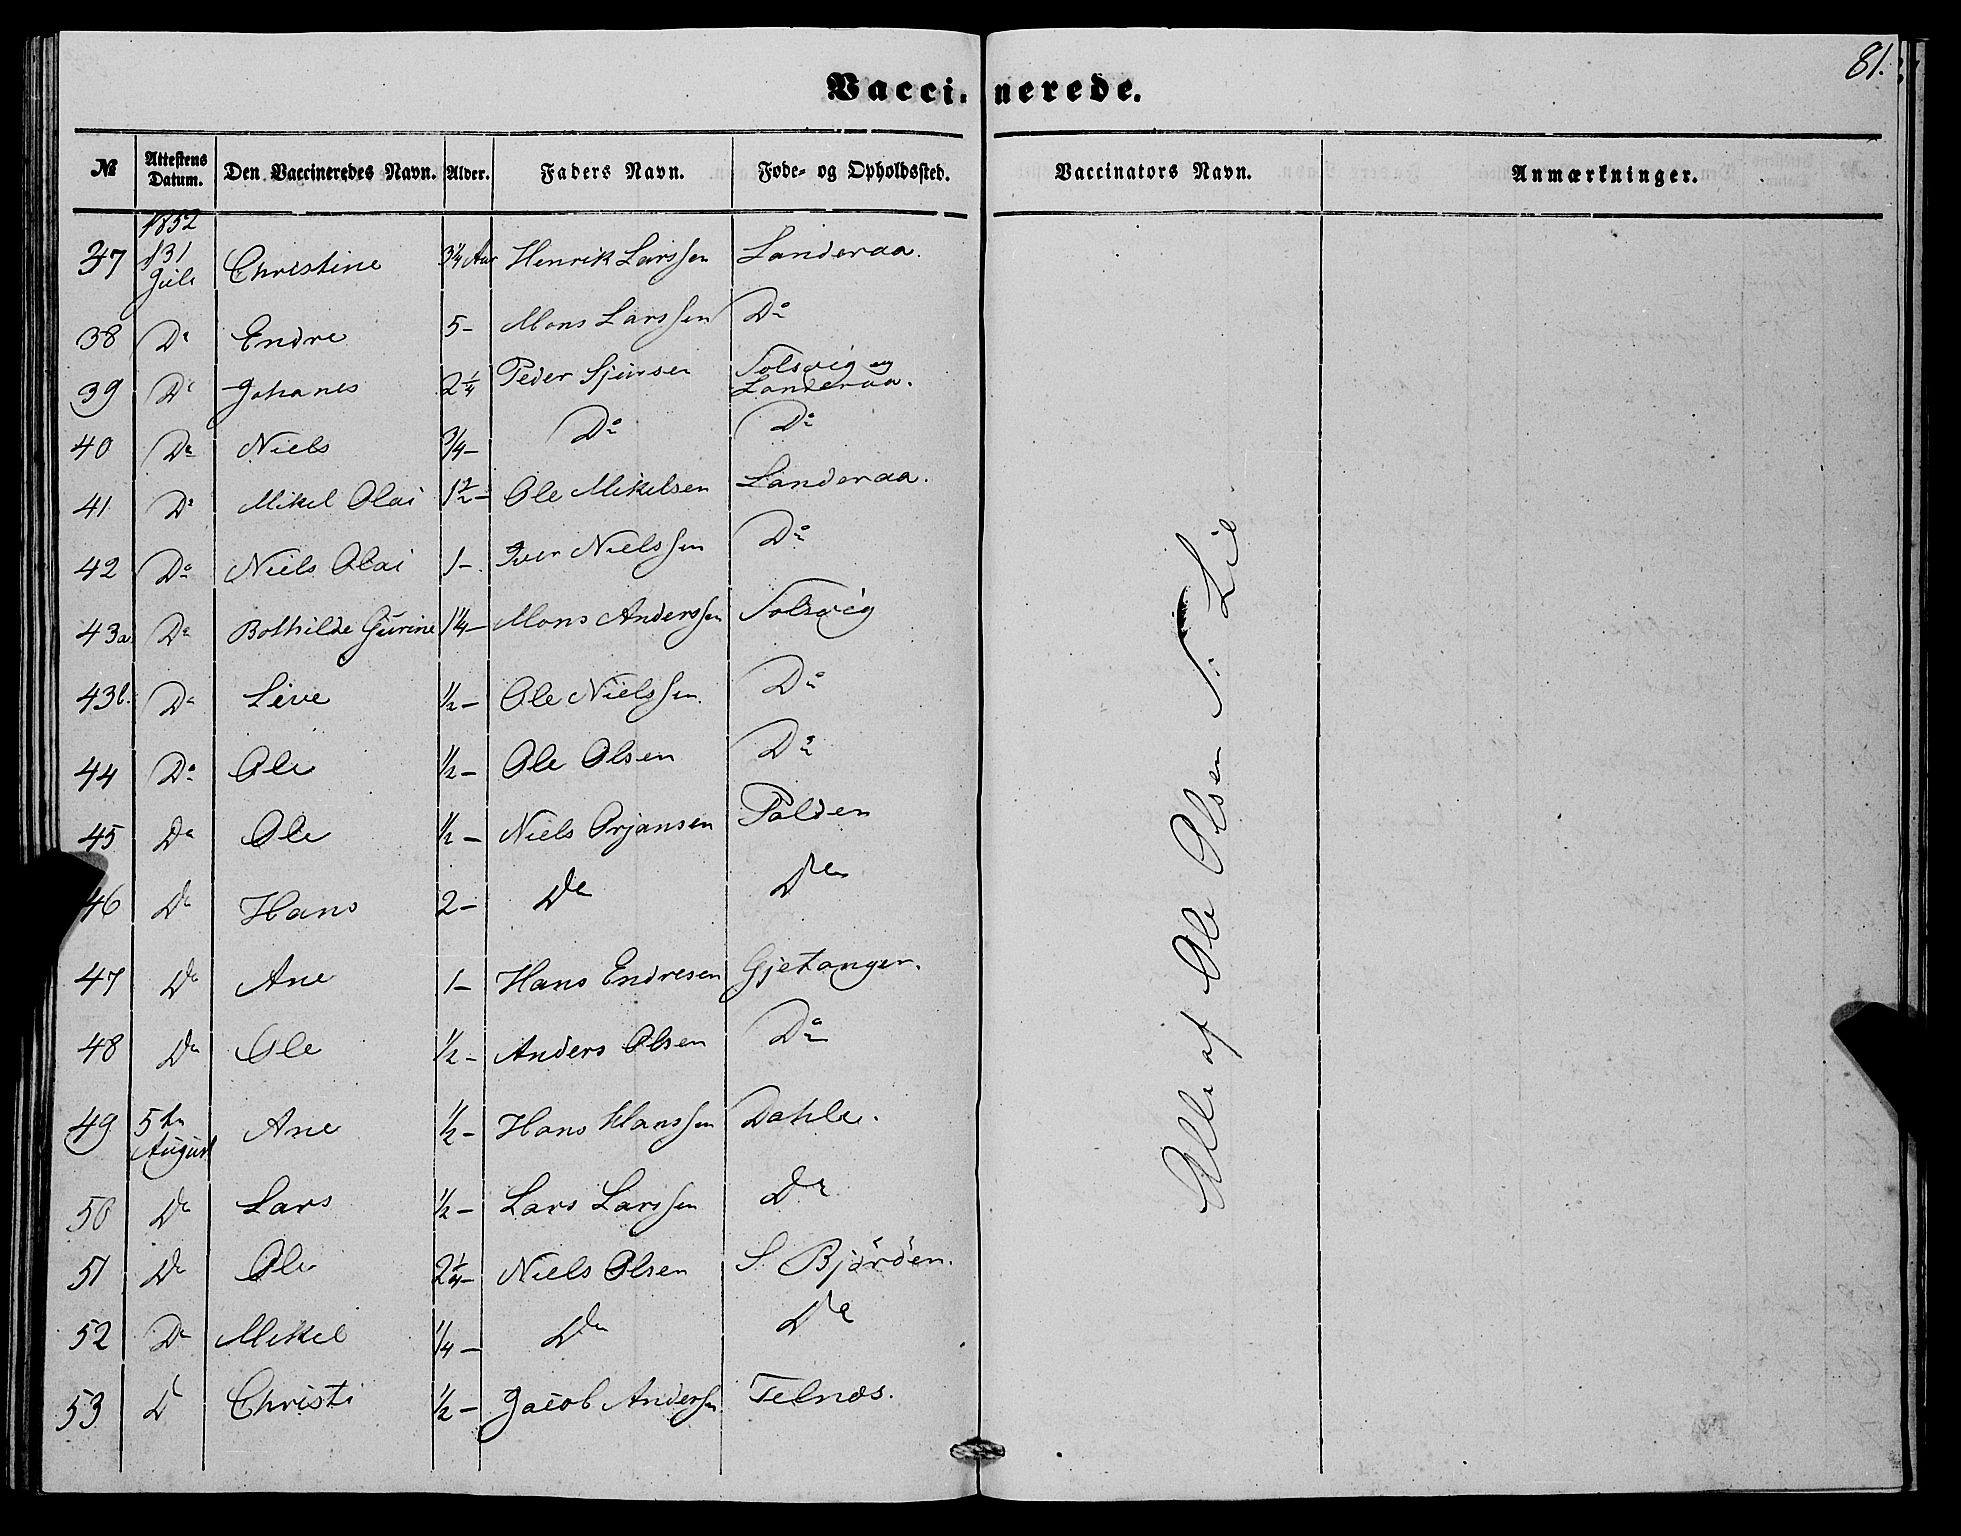 81.
Vaccinerede.
№ Attestens Datum. Den Vaccineredes Navn. Alder. Faders Navn. Føde- og Opholdssted. Vaccinators Navn. Anmærkninger.
1852
37 31 Juli Christine 3¼ Aar Henrik Larssen Landeraa.
38 Do Endre 5- Mons Larssen Do
39 Do Johanes 2¼ Peder Sjursen Solsvig og Landeraa.
40 Do Niels ¾- Do Do
41 Do Mikel Olai 1½- Ole Mikelsen Landeraa.
42 Do Niels Olai 1- Iver Nielssen Do
43a Do Bothilde Gurine 1¼- Mons Anderssen Solsvig
43b. Do Live ½- Ole Nielssen Do
44 Do Ole ½- Ole Olsen Do
45 Do Ole ½- Niels Orjansen Polden
46 Do Hans 2- Do Do
47 Do Ane 1- Hans Endresen Gjetanger.
48 Do Ole ½- Anders Olsen Do
49 5te August Ane ½- Hans Hanssen Dahle.
50 Do Lars ½- Lars Larssen Do
51 Do Ole 2¼- Niels Olsen S. Bjørøen.
52 Do Mikel ¼- Do Do
53 D Christi ½- Jacob Anderssen Telnæs.
Alle af Ole Olsen S. Lie